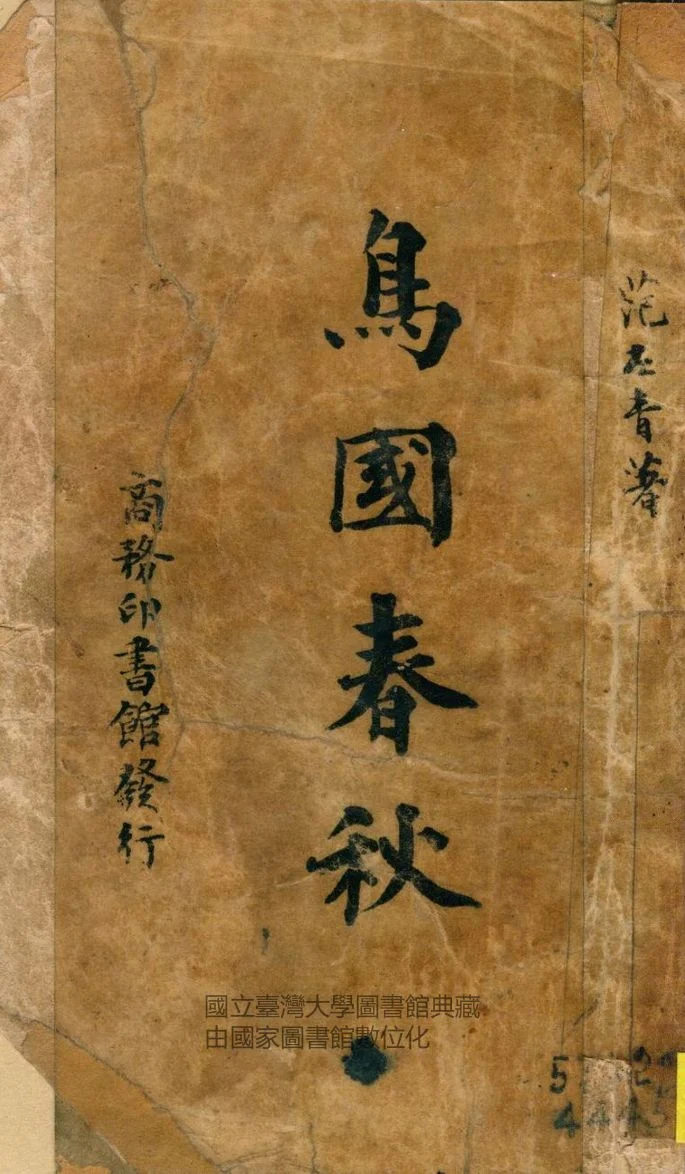 范左青著
鳥國春秋
商務印書館發行
國立臺灣大學圖書館典藏
由國家圖書館數位化